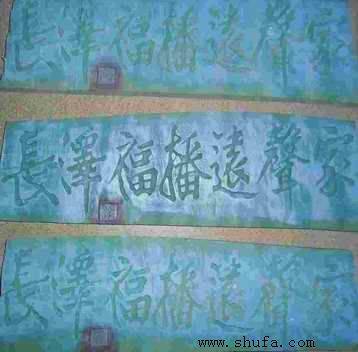 家聲遠播福澤長
家聲遠播福澤長
家聲遠播福澤長
www.shufa.com